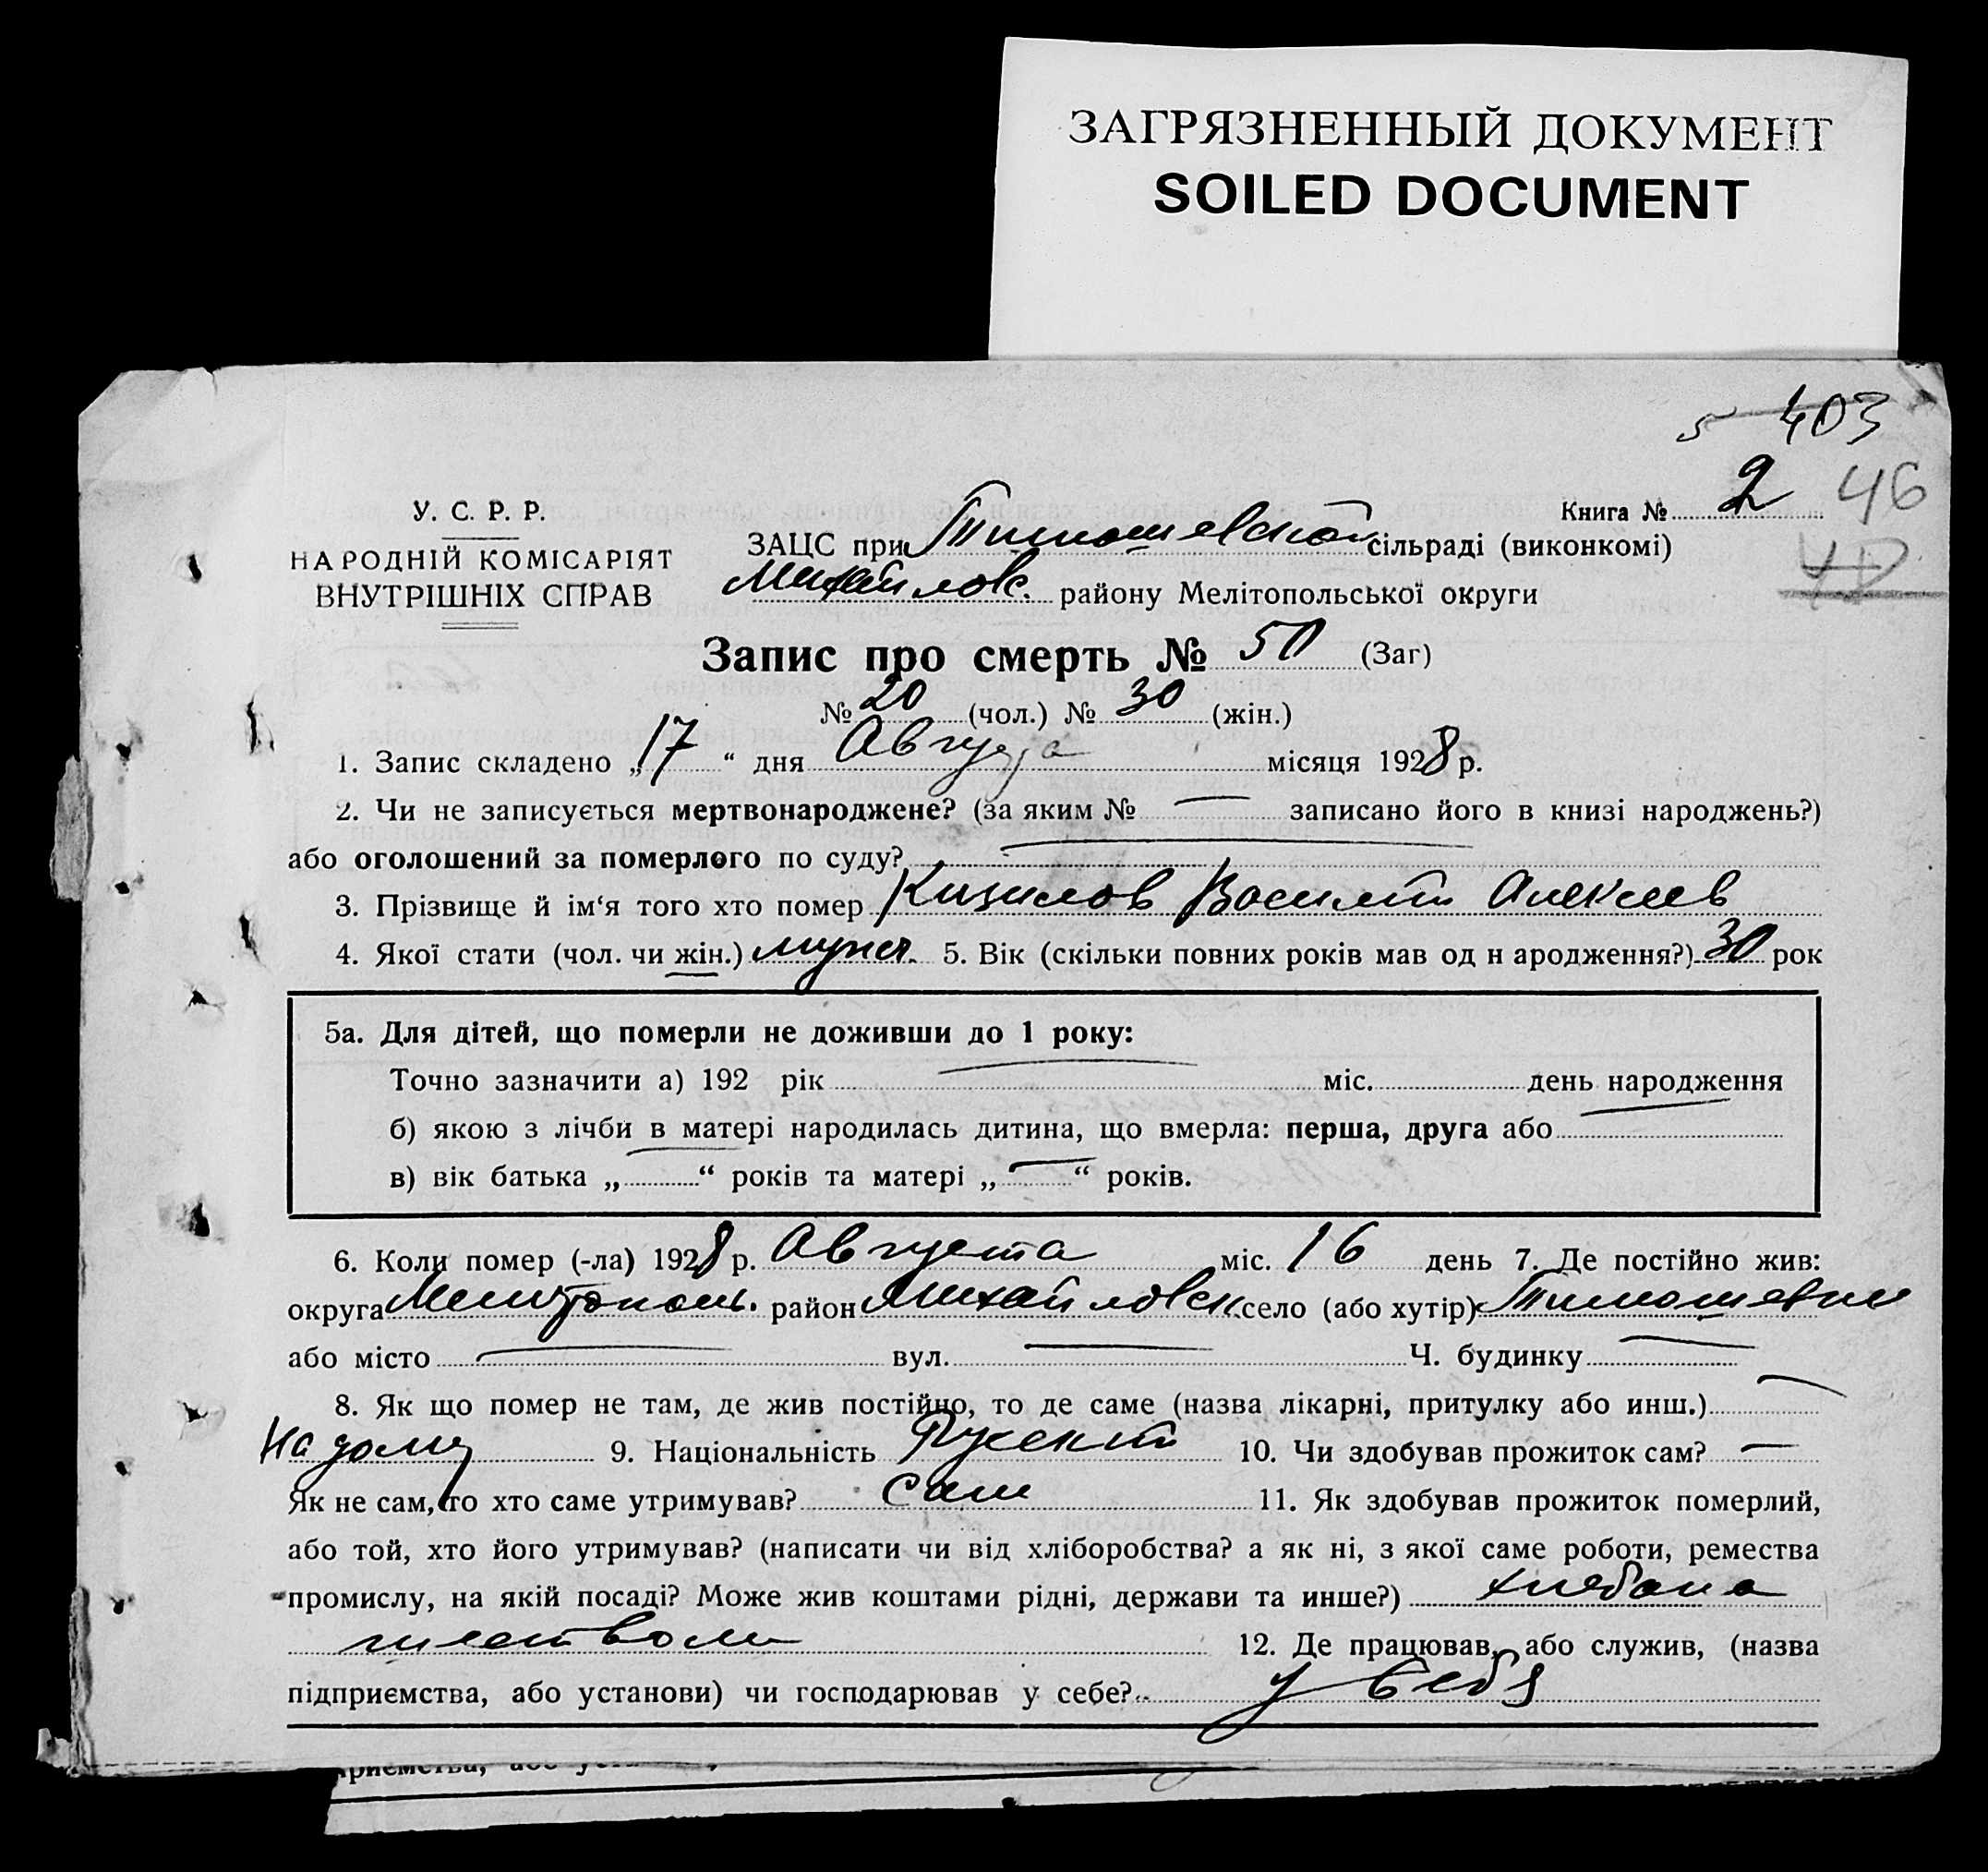 ЗАГРЯЗНЕННЫЙ ДОКУМЕНТ
SOILED DOCUMENT
403
Книга № 2 46
У. С. Р. Р.
НАРОДНІЙ КОМІСАРІЯТ
ВНУТРІШНІХ СПРАВ
ЗАЦС при Тимошевской сільраді (виконкомі)
Михайлов. району Мелітопольської округи
Запис про смерть № 50 (Заг)
№ 20 (чол.) № 30 (жін.)
1. Запис складено „17“ дня Августа місяця 1928 р.
2. Чи не записується мертвонароджене? (за яким № — записано його в книзі народжень?)
або оголошений за померлого по суду? —
3. Прізвище й ім‘я того хто помер Кизилов Василий Алексеев
4. Якої стати (чол. чи жін.) мужск. 5. Вік (скільки повних років мав од н ародження?) 30 рок
5а. Для дітей, що померли не доживши до 1 року:
Точно зазначити а) 192 рік — міс. день народження
б) якою з лічби в матері народилась дитина, що вмерла: перша, друга або —
в) вік батька „—“ років та матері „—“ років.
6. Коли помер (-ла) 1928 р. Августа міс. 16 день 7. Де постійно жив:
округа Мелитополь. район Михайловск село (або хутір) Тимошевки
або місто — вул. — Ч. будинку —
8. Як що помер не там, де жив постійно, то де саме (назва лікарні, притулку або инш.) —
На дому 9. Національність Русский 10. Чи здобував прожиток сам? —
Як не сам, то хто саме утримував? сам 11. Як здобував прожиток померлий,
або той, хто його утримував? (написати чи від хліборобства? а як ні, з якої саме роботи, ремества
промислу, на якій посаді? Може жив коштами рідні, держави та инше?) хлебопа
шеством 12. Де працював, або служив, (назва
підприємства, або установи) чи господарював у себе? у себя